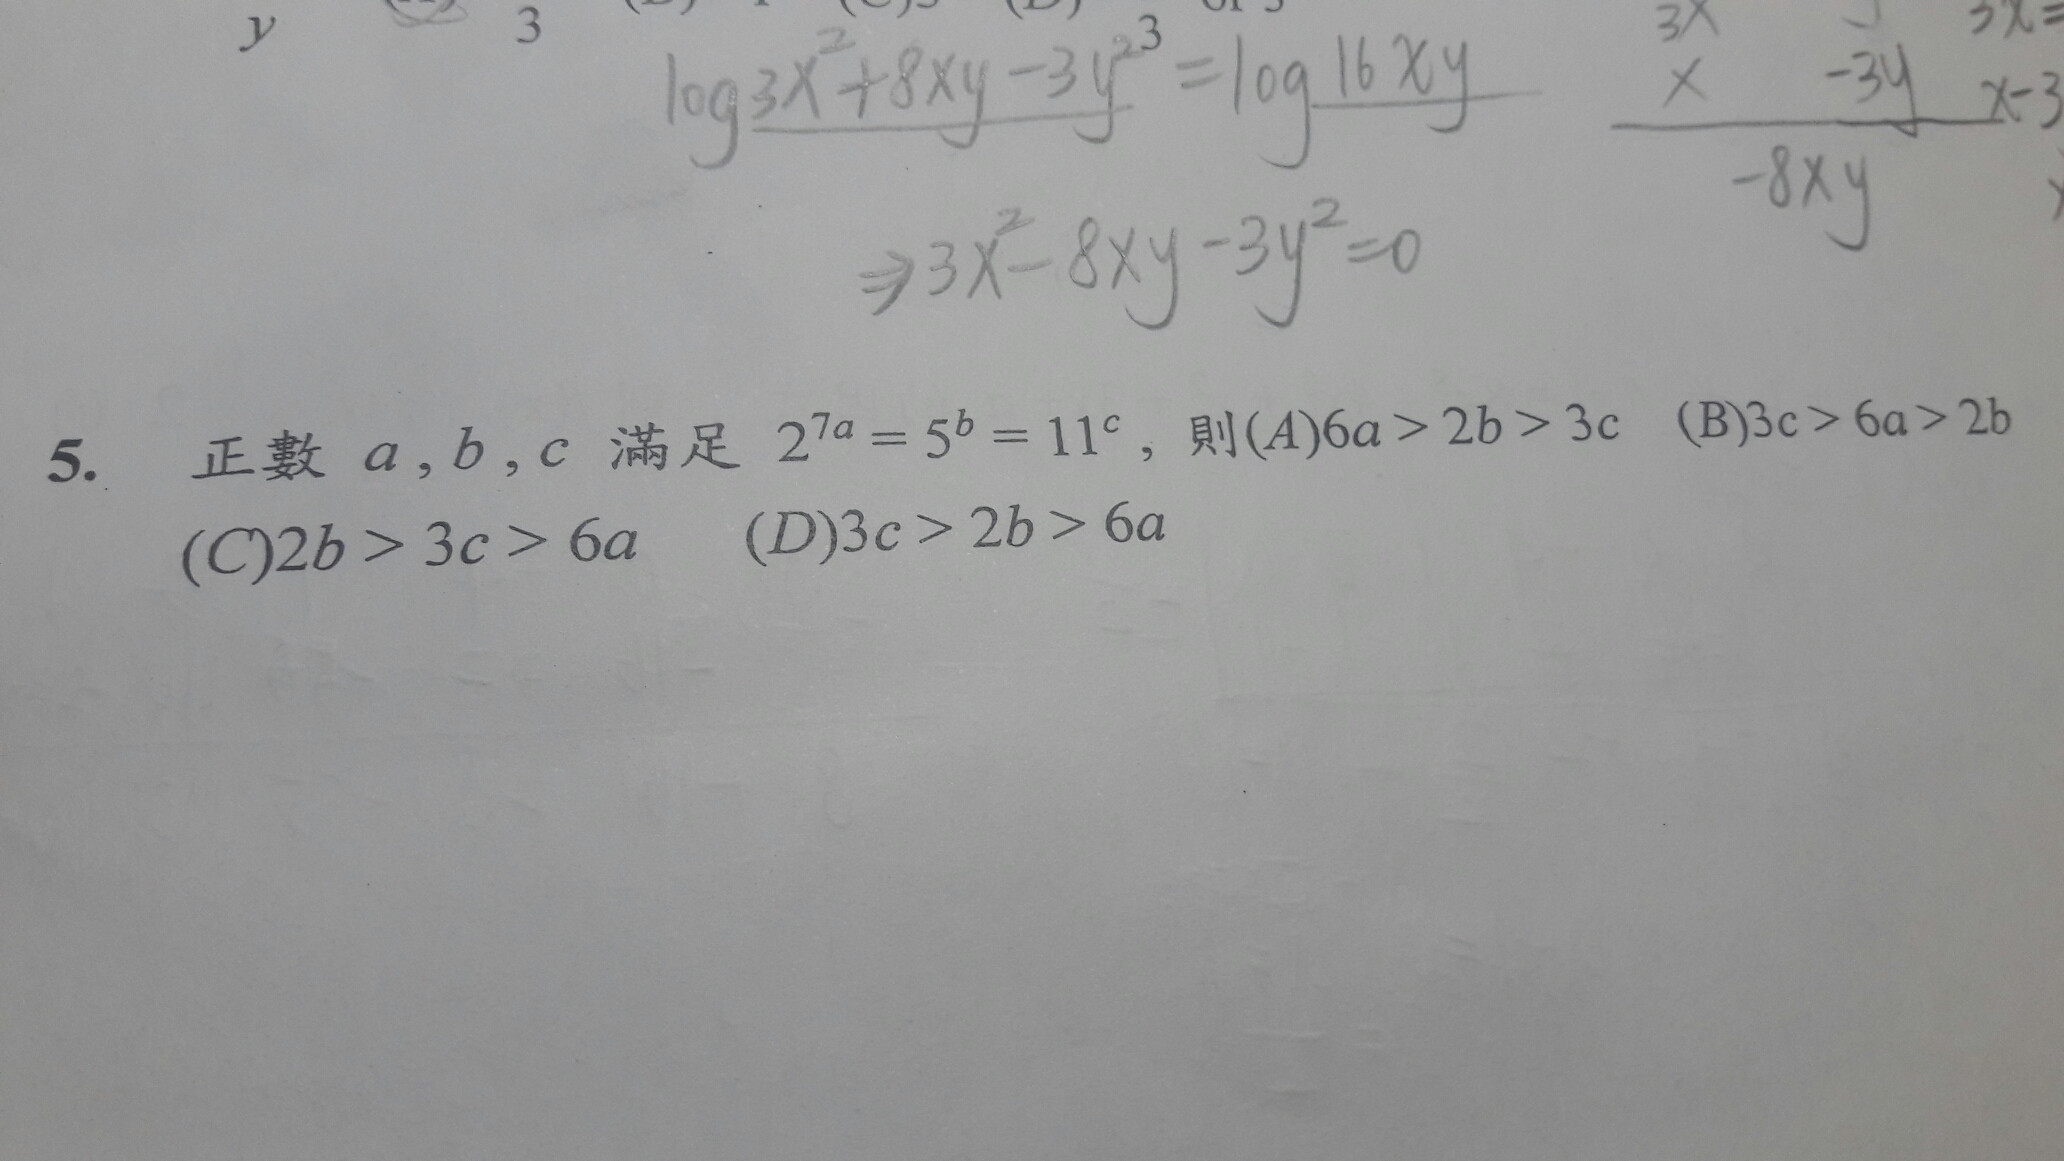 y 3
log 3x²+8xy-3y²³ = log 16xy
3x
x -3y x-3
-8xy
⇒3x²-8xy-3y²=0
5. 正數 a , b , c 滿足 2⁷ᵃ = 5ᵇ = 11ᶜ , 則(A)6a > 2b > 3c (B)3c > 6a > 2b
(C)2b > 3c > 6a (D)3c > 2b > 6a